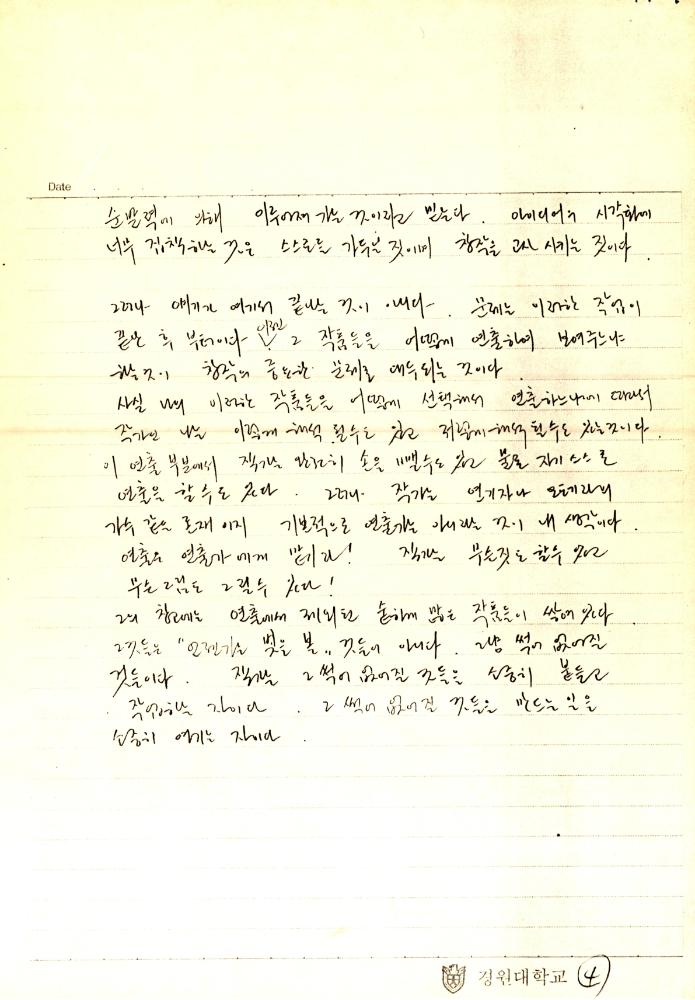 Date
순발력에 의해 이루어져 가는 것이라고 믿는다. 아이디어의 시각화에
너무 집착하는 것은 스스로를 가두는 짓이며 창작을 고사 시키는 짓이다
그러나 얘기가 여기서 끝나는 것이 아니다. 문제는 이러한 작업이
끝난 후 부터이다 이런 그 작품들을 어떻게 연출하여 보여주느냐
하는것이 창작의 중요한 문제로 대두되는 것이다
사실 나의 이러한 작품들을 어떻게 선택해서 연출하느냐에 따라서
작가인 나는 이렇게 해석 될수도 있고 저렇게 해석 될수도 있는것이다.
이 연출 부분에서 작가는 완전히 손을 뺄수도 있고 물론 자기 스스로
연출을 할 수도 있다. 그러나 작가는 연기자나 오페라의
가수 같은 존재 이지 기본적으로 연출가는 아니라는 것이 내 생각이다.
연출은 연출가에게 맡기라! 작가는 무슨짓도 할수 있고
무슨 그림도 그릴수 있다!
그의 창고에는 연출에서 제외된 숱하게 많은 작품들이 쌓여 있다.
그것들은 "언젠가는 빛을 볼" 것들이 아니다. 그냥 썩어 없어질
것들이다. 작가는 그 썩어 없어질 것들을 소중히 붙들고
작업하는 자이다. 그 썩어 없어질 것들을 만드는 일을
소중히 여기는 자이다.
경원대학교 4